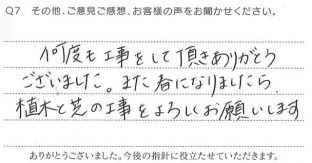 Q7 その他、ご意見ご感想、お客様の声をお聞かせください。
何度も工事をして頂きありがとう
ございました。また春になりましたら
植木と芝の工事をよろしくお願いします
ありがとうございました。今後の指針に役立たせていただきます。